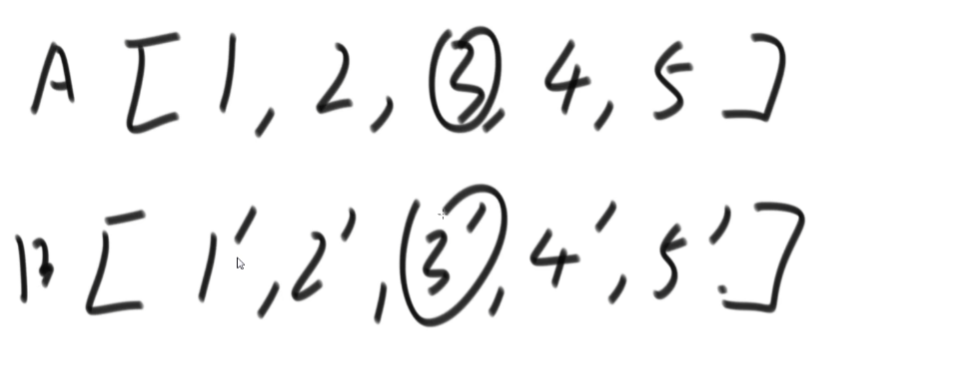 A [ 1, 2, 3, 4, 5 ]
B [ 1', 2', 3', 4', 5' ]